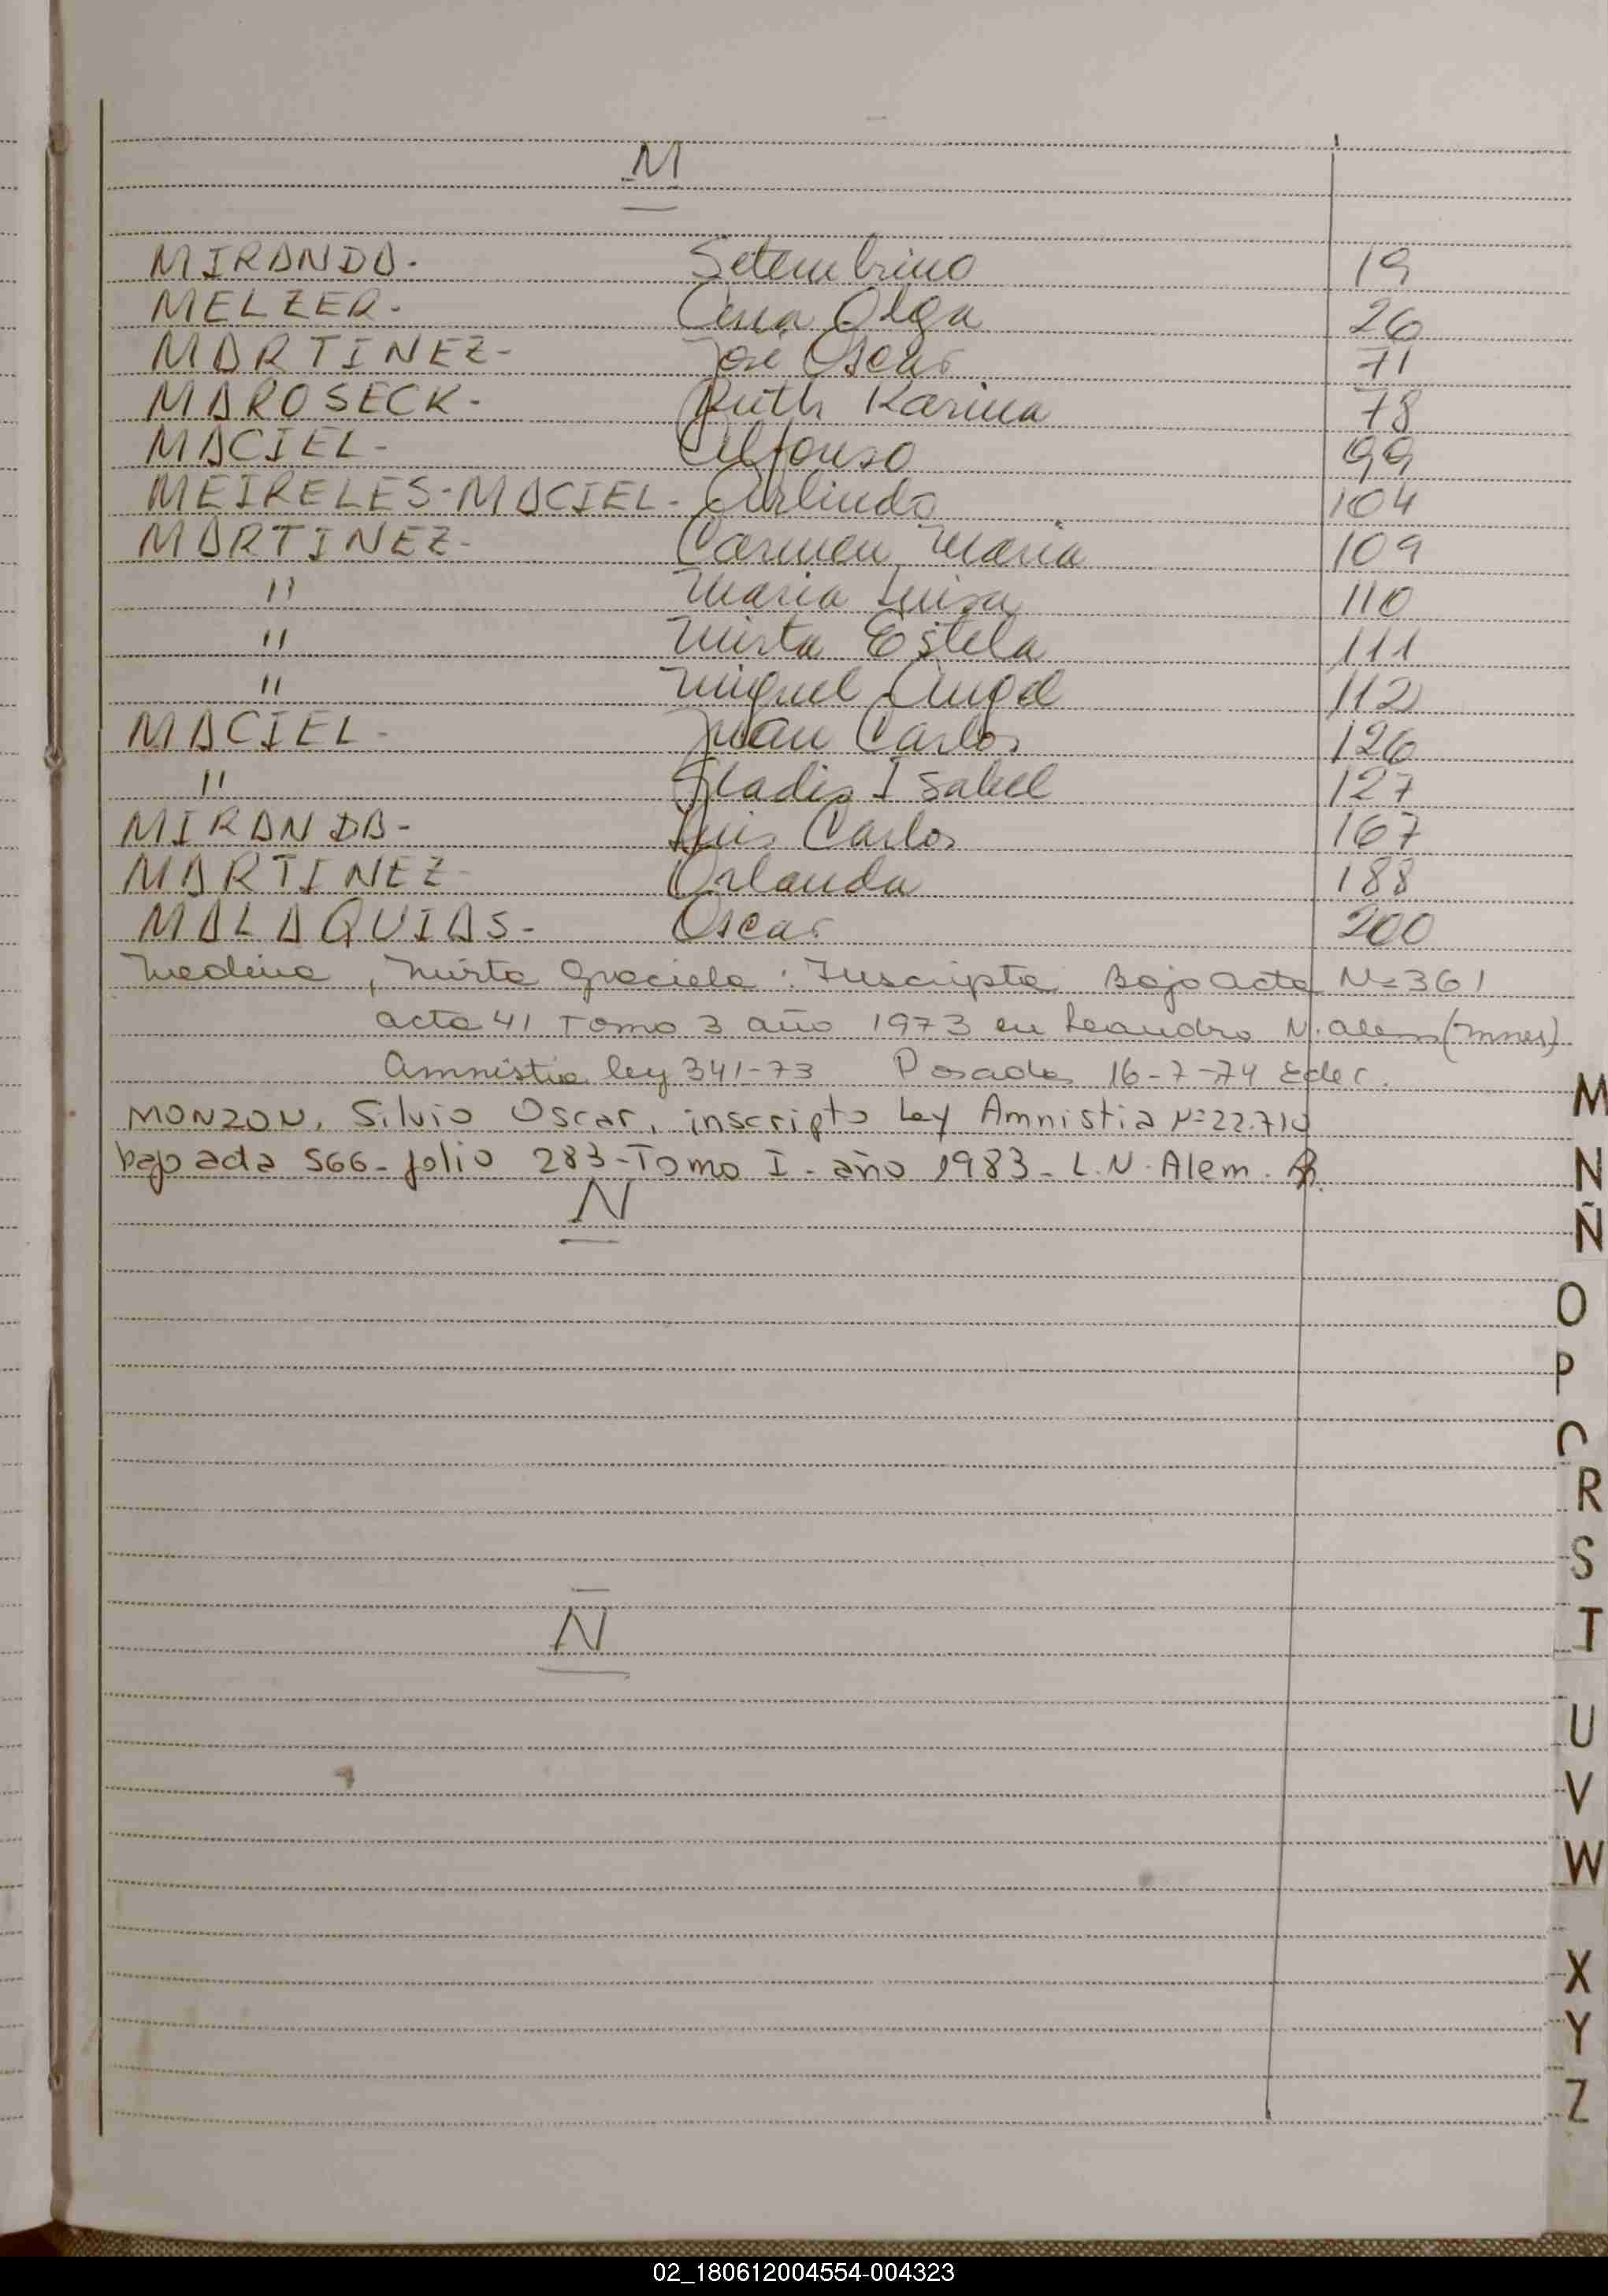 M
MIRANDA. Setembrino 19
MELZER. Ana Olga 26
MARTINEZ- José Oscar 71
MAROSECK. Ruth Karina 78
MACIEL- Alfonso 99
MEIRELES-MACIEL- Arlindo 104
MARTINEZ- Carmen Maria 109
" Maria Luisa 110
" Mirta Estela 111
" Miguel Angel 112
MACIEL- Juan Carlos 126
" Gladis Isabel 127
MIRANDA- Luis Carlos 167
MARTINEZ- Orlanda 188
MALAQUIAS- Oscar 200
Medina, Mirta Graciela: Inscripta Bajo acta Nº 361
acta 41 Tomo 3 año 1973 en Leandro N. alem (mnes)
Amnistia ley 341-73 Posadas 16-7-74
MONZON, Silvio Oscar, inscripto Ley Amnistia Nº 22.710
bajo acta 566-folio 283-Tomo I-año 1983-L.N. Alem.
N
Ñ
M
N
Ñ
O
P
Q
R
S
T
U
V
W
X
Y
Z
02_180612004554-004323